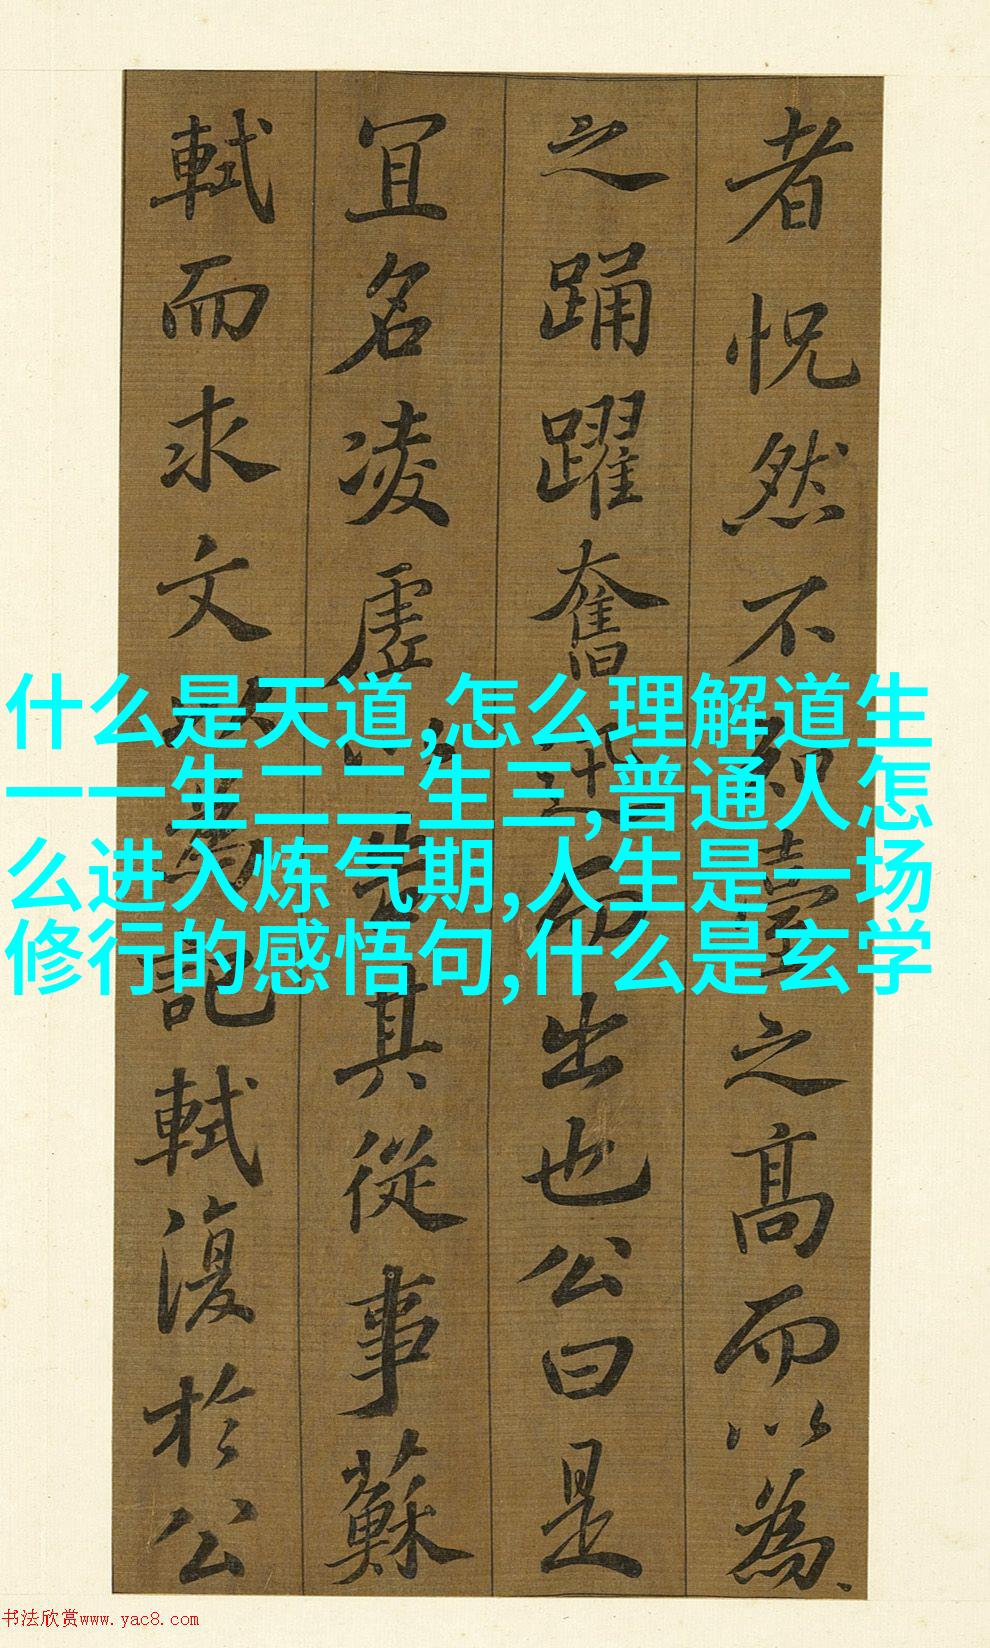 者怳然不知臺之高而以為
之踊躍奮迅而出也公曰是
冝名凌虛以告其從事蘇
軾而求文以為記軾復於公
什么是天道,怎么理解道生
一一生二二生三,普通人怎
么进入炼气期,人生是一场
修行的感悟句,什么是玄学
书法欣赏www.yac8.com